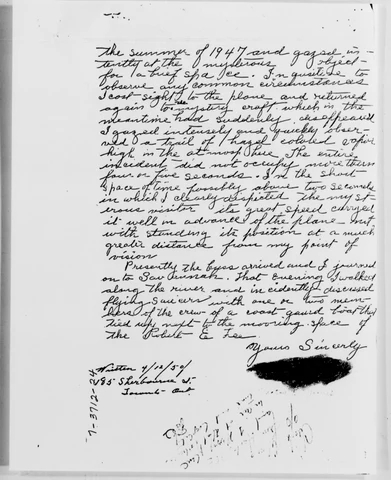 the summer of 1947 and gazed in-
tently at the mysterous object
for a brief space. Inquistive to
observe any common circumstances
I cast sight to the plane and returned
again to mystery craft which in the
meantime had suddenly disappeared
I gazed intensely and quickly obser-
ved a trail of Hazel colored vapor
high in the atmosphire. The entire
incident did not occupy more than
four or five seconds. In the short
space of time possibly about two seconds
in which I clearly depicted the myst-
erous visitor its great speed carried
it well in advance of the plane not
with standing its position at a much
greater distance from my point of
vision
Presently the Eyes arrived and I journed
on to Savannah. That evening I walked
along the river and incidently discussed
flying saucers with one or two mem-
bers of the crew of a coast gaurd boat they
tied up next to the mooring space of
the Robert E Lee
Yours Sincerly
Written 9/12/50
195 Sherbourne St
Toronto Ont
7-3712-24